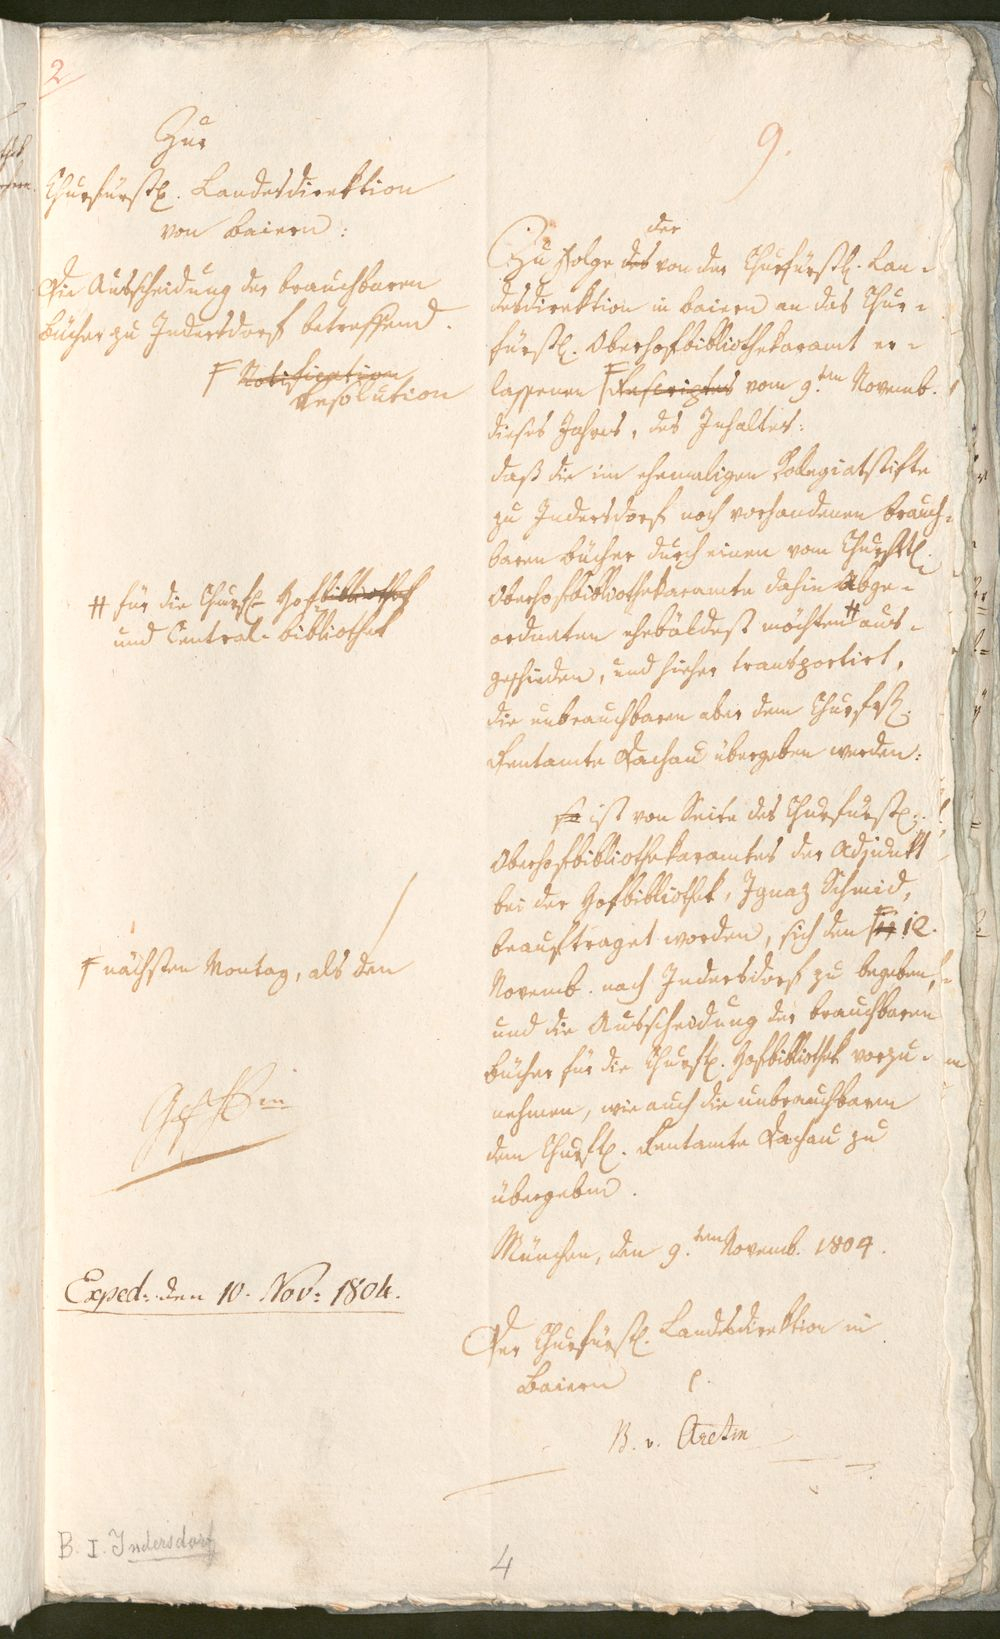 2
Zur
Churfürstl. Landesdirektion
von Baiern:
Die Ausscheidung der brauchbaren
Bücher zu Indersdorf betreffend.
F Notification
Resolution
# für die Churfl. Hofbibliothek
und Central-Bibliothek
F nächsten Montag, als den
Exped: den 10. Nov: 1804.
B. I. Indersdorf
9.
der
Zu Folge des von der Churfürstl. Lan-
desdirektion in Baiern an das Chur-
fürstl. Oberhofbibliothekaramt er-
lassenen F Rescriptes vom 9.ten Novemb.
dieses Jahres, des Inhaltes:
daß die im ehemaligen Kollegiatstifte
zu Indersdorf noch vorhandenen brauch-
baren Bücher durch einen vom Churfstl.
Oberhofbibliothekaramte dahin Abge-
ordneten ehebäldest möchten # aus-
geschieden, und hieher transportirt,
die unbrauchbaren aber dem Churfstl.
Rentamte Dachau übergeben werden:
so ist von Seite des Churfürstl.
Oberhofbibliothekaramtes der Adjunkt
bei der Hofbibliothek, Ignaz Schmid,
beauftraget worden, sich den F 12.
Novemb. nach Indersdorf zu begeben,
und die Ausscheidung der brauchbaren
Bücher für die Churfl. Hofbibliothek vorzu-
nehmen, wie auch die unbrauchbaren
dem Churfl. Rentamte Dachau zu
übergeben.
München, den 9.ten Novemb. 1804.
Der Churfürstl. Landesdirektion in
Baiern
B. v. Aretin
4